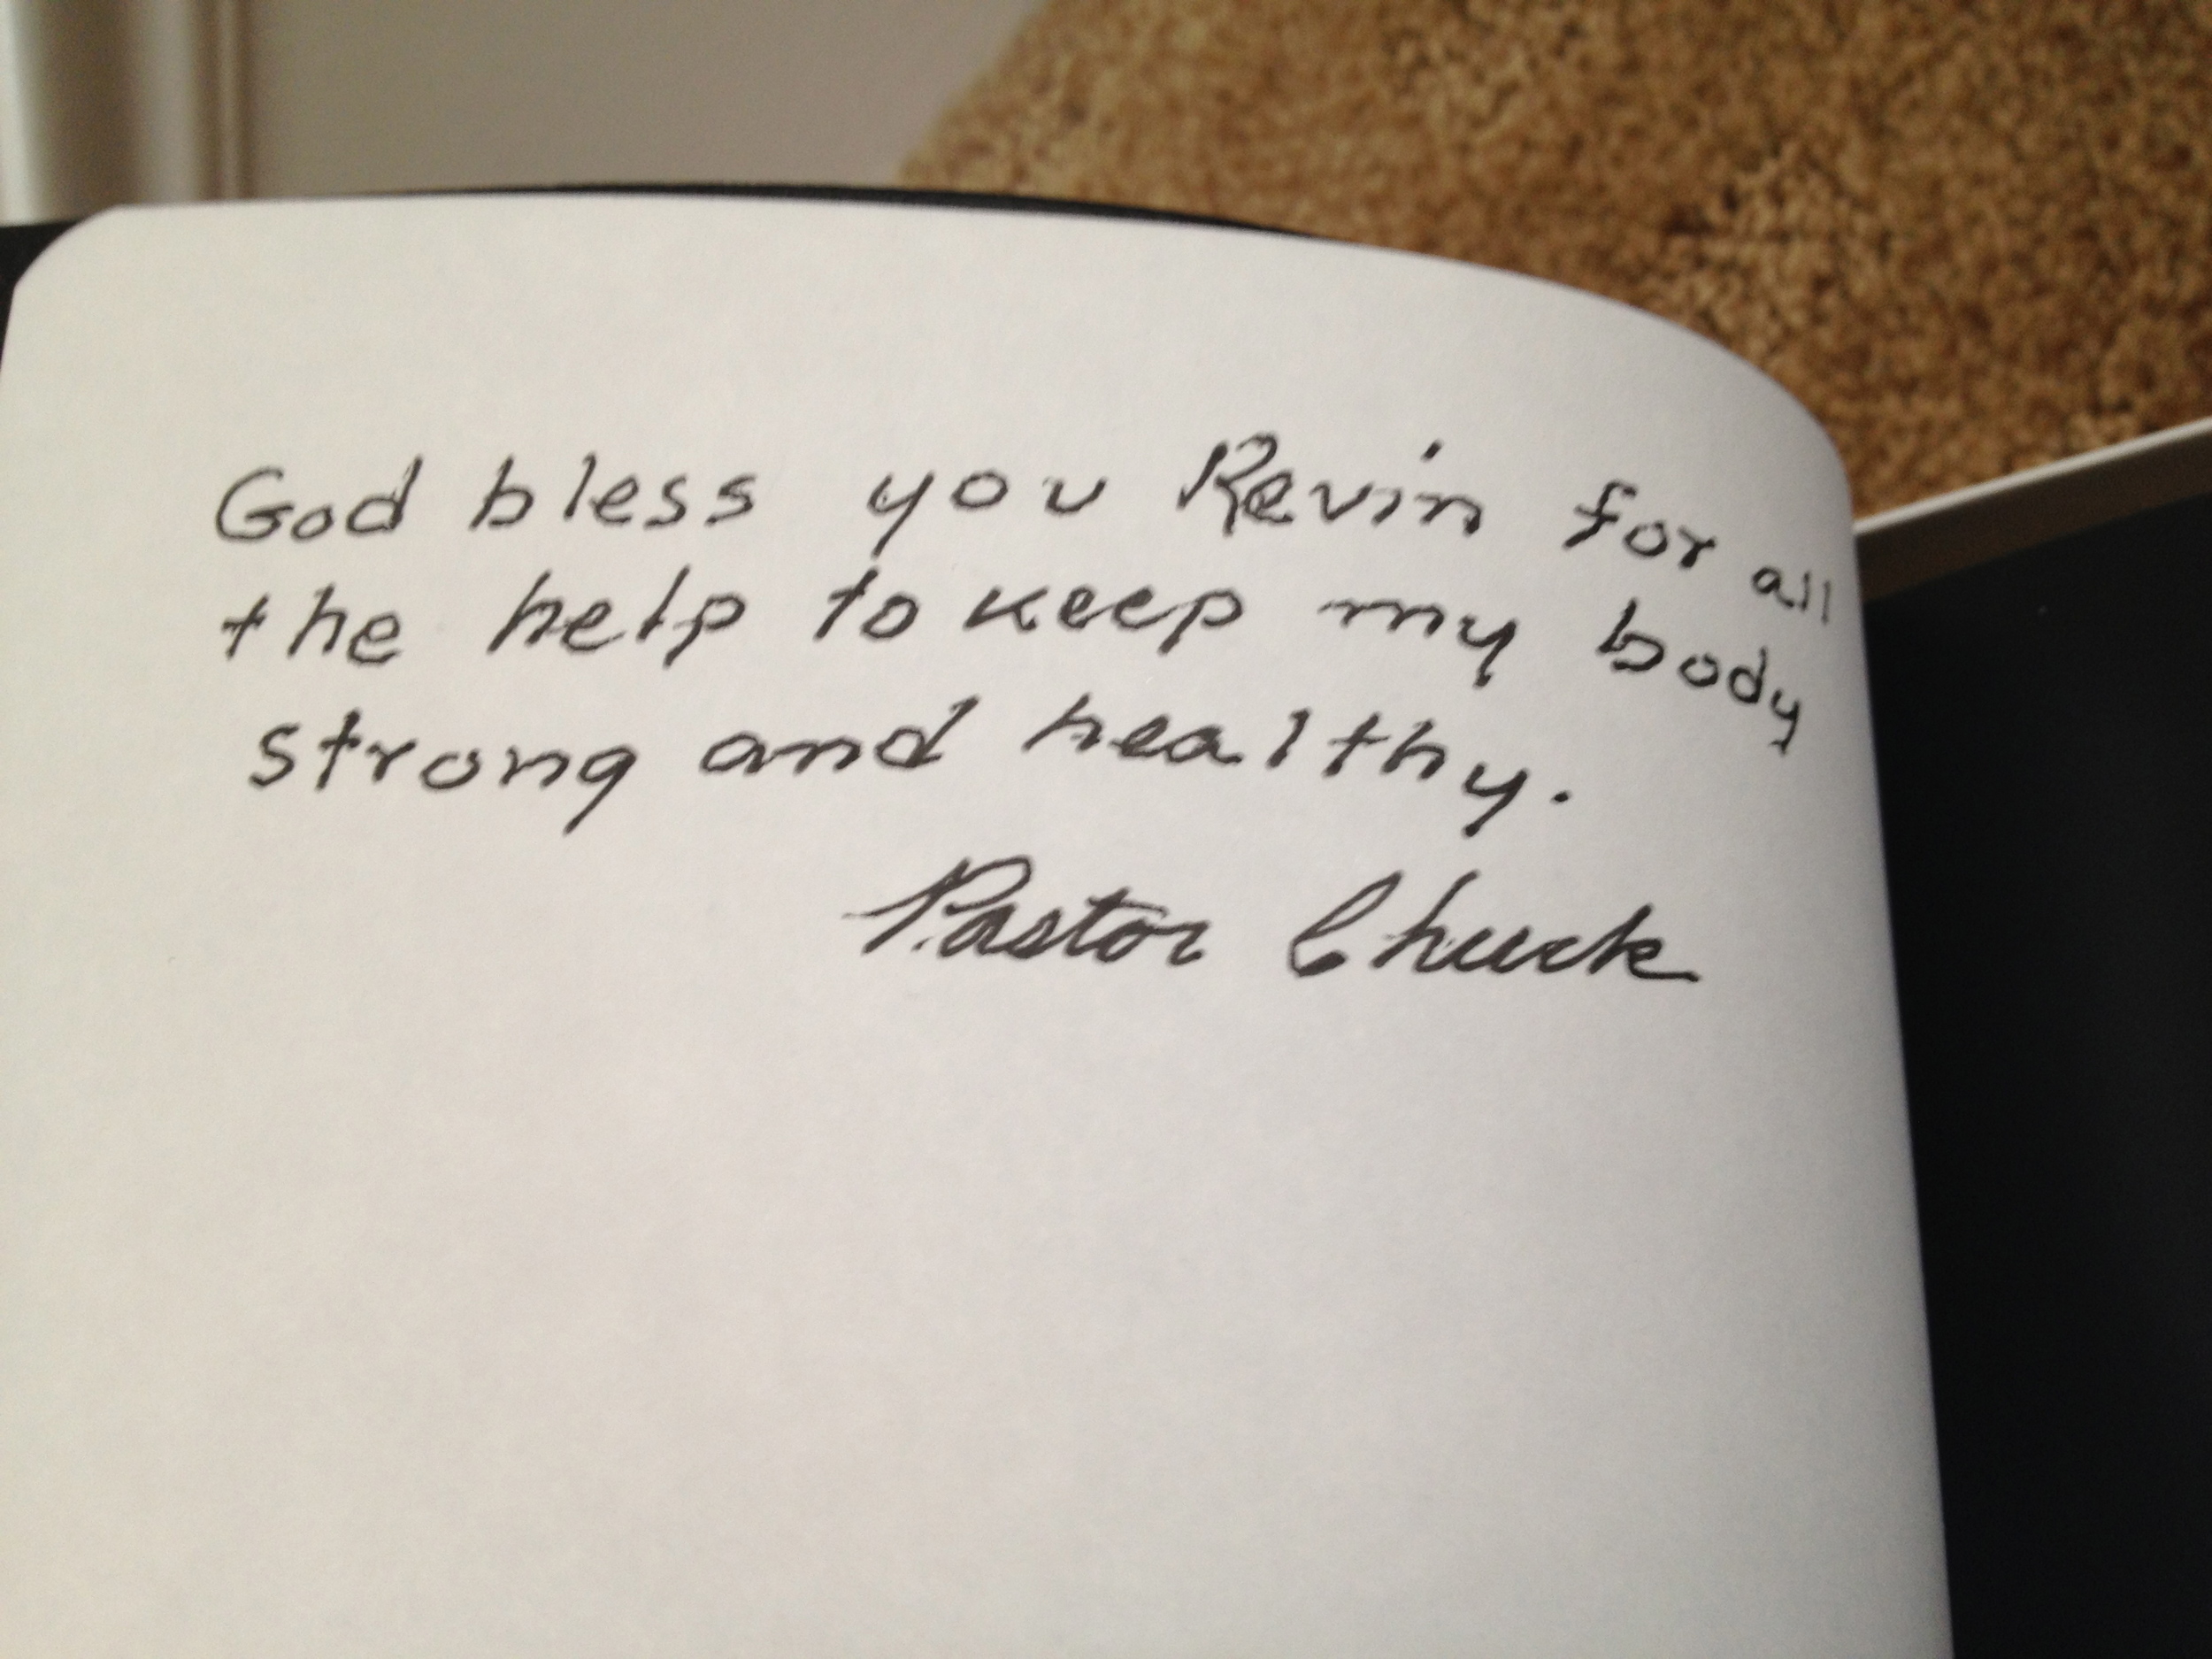 God bless you Kevin for all
the help to keep my body
strong and healthy.
Pastor Chuck